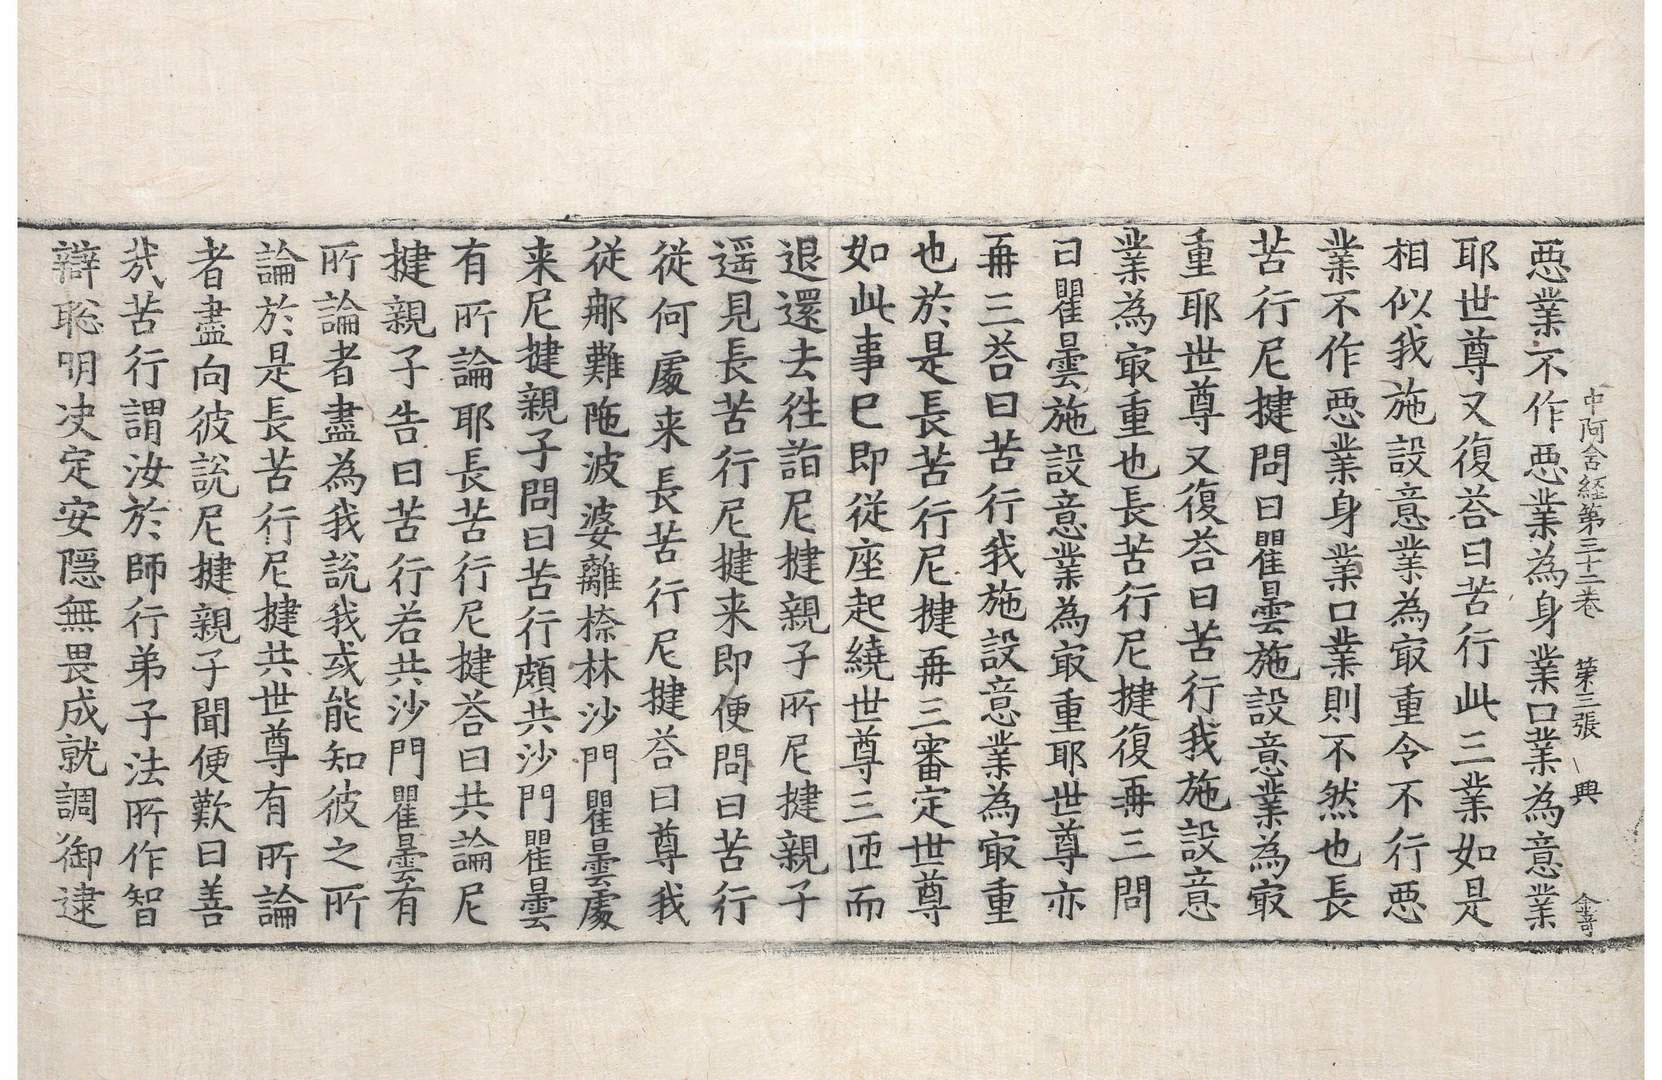 中阿含経第三十二卷 第三張 興 金哿
惡業不作惡業為身業口業為意業
耶世尊又復荅曰苦行此三業如是
相似我施設意業為冣重令不行惡
業不作惡業身業口業則不然也長
苦行尼揵問曰瞿曇施設意業為冣
重耶世尊又復荅曰苦行我施設意
業為冣重也長苦行尼揵復再三問
曰瞿曇施設意業為冣重耶世尊亦
再三荅曰苦行我施設意業為冣重
也於是長苦行尼揵再三審定世尊
如此事已即從座起繞世尊三匝而
退還去徃詣尼揵親子所尼揵親子
遥見長苦行尼揵来即便問曰苦行
從何處来長苦行尼揵荅曰尊我
從那難陁波婆離㮈林沙門瞿曇處
来尼揵親子問曰苦行頗共沙門瞿曇
有所論耶長苦行尼揵荅曰共論尼
揵親子告曰苦行若共沙門瞿曇有
所論者盡為我說我或能知彼之所
論於是長苦行尼揵共世尊有所論
者盡向彼說尼揵親子聞便歎曰善
㢤苦行謂汝於師行弟子法所作智
辯聡明决定安隱無畏成就調御逮